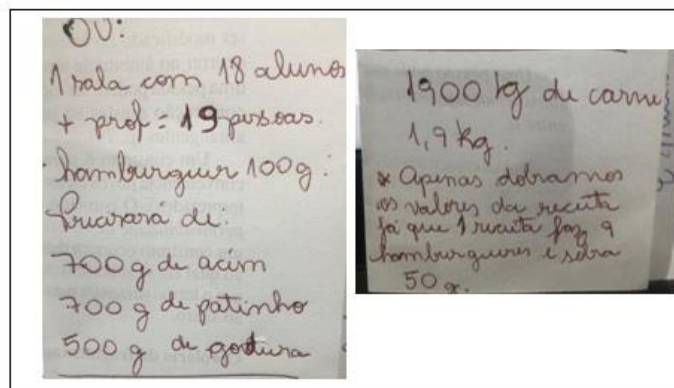 OU:
1 sala com 18 alunos
+ prof = 19 pessoas.
hamburguer 100g:
Precisará de:
700 g de acém
700 g de patinho
500 g de gordura
1900 kg de carne
1,9 kg.
* Apenas dobramos
os valores da receita
já que 1 receita faz 9
hamburgueres e sobra
50 g.